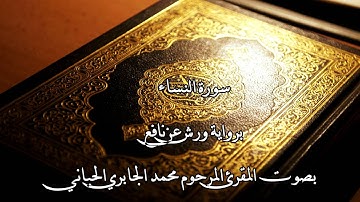 سورة النساء
برواية ورش عن نافع
بصوت المقرئ المرحوم محمد الجابري الحياني